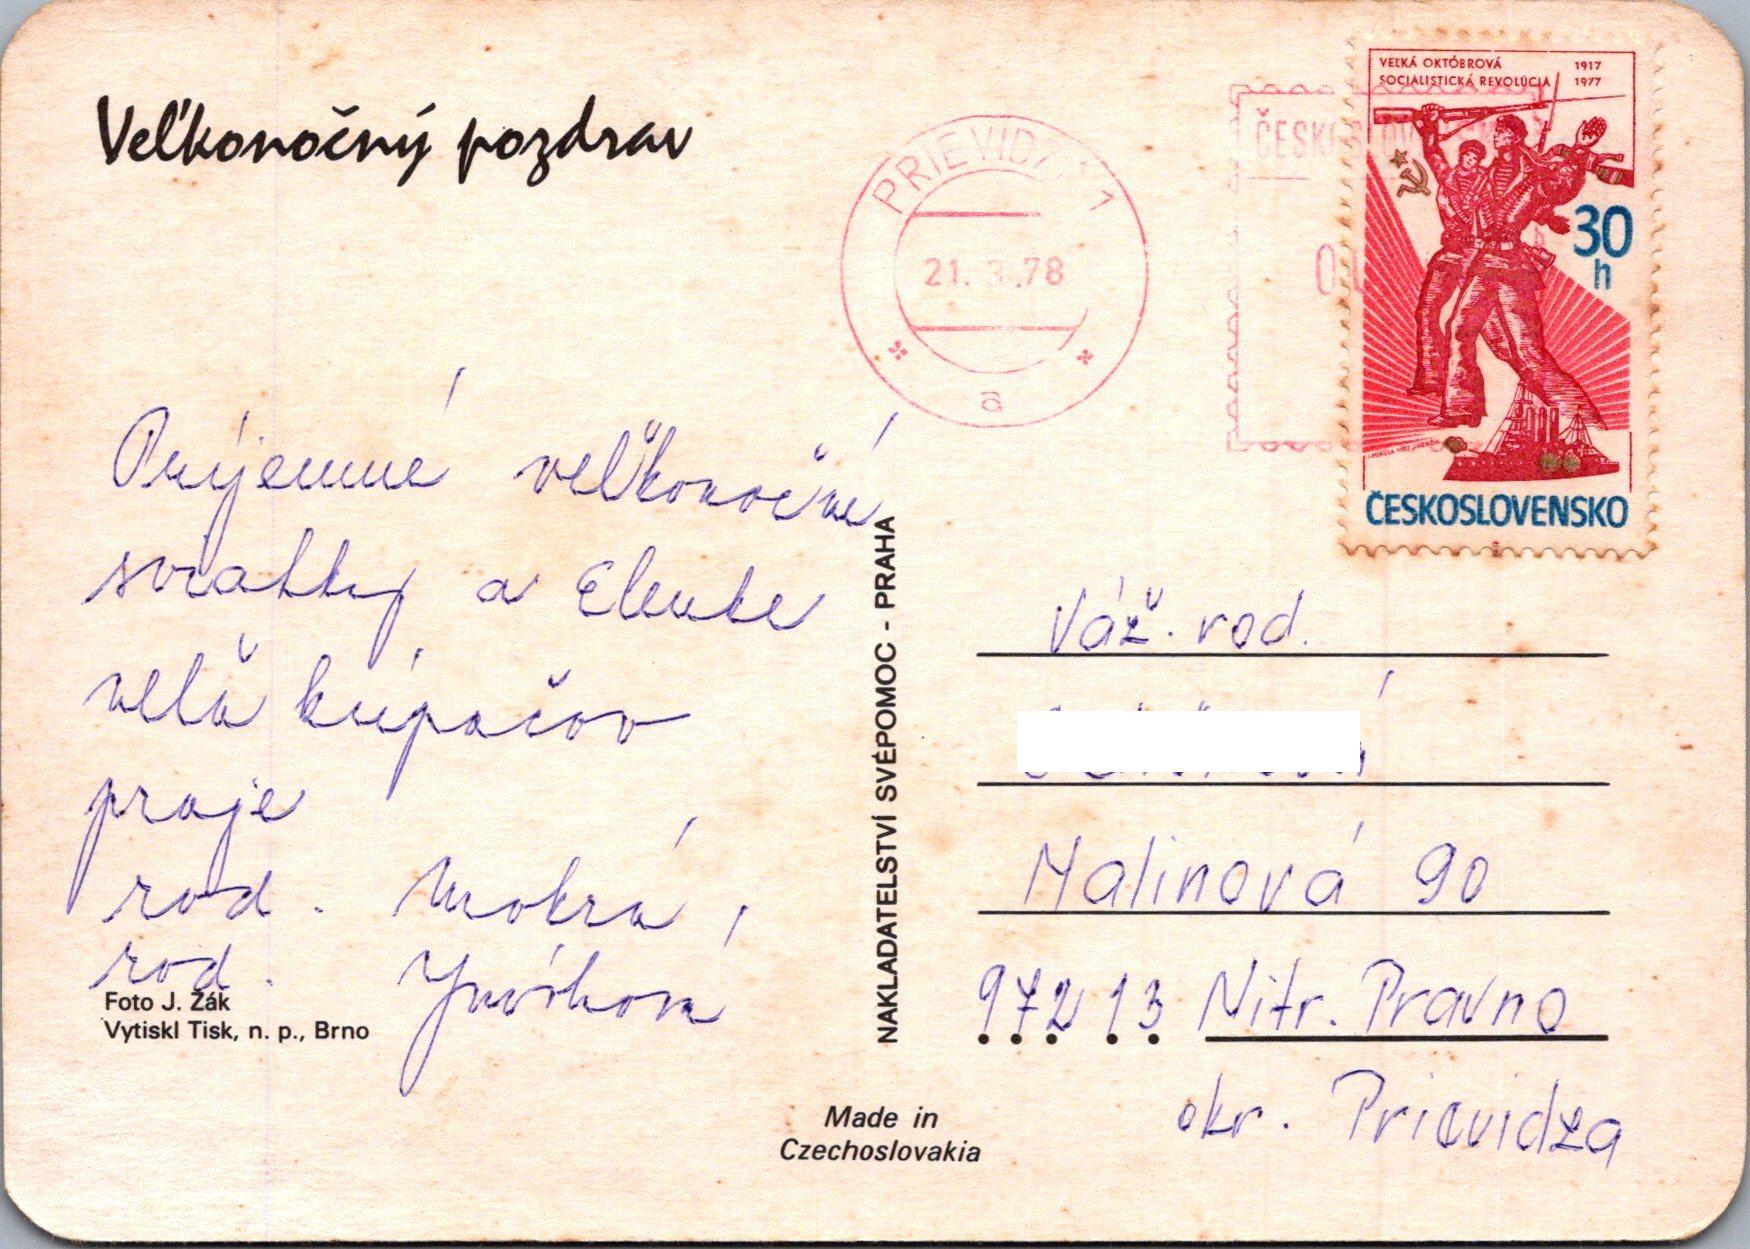 Veľkonočný pozdrav
PRIEVIDZA 1
21. 3. 78
a
VEĽKÁ OKTÓBROVÁ
SOCIALISTICKÁ REVOLÚCIA
1917
1977
30
h
ČESKOSLOVENSKO
Príjemné veľkonočné
sviatky a Elenke
veľa kúpačov
praje
rod. Mokrá,
rod.
Foto J. Žák
Vytiskl Tisk, n. p., Brno
NAKLADATELSTVÍ SVÉPOMOC - PRAHA
Made in
Czechoslovakia
Váž. rod.
Malinová 90
972 13 Nitr. Pravno
okr. Prievidza